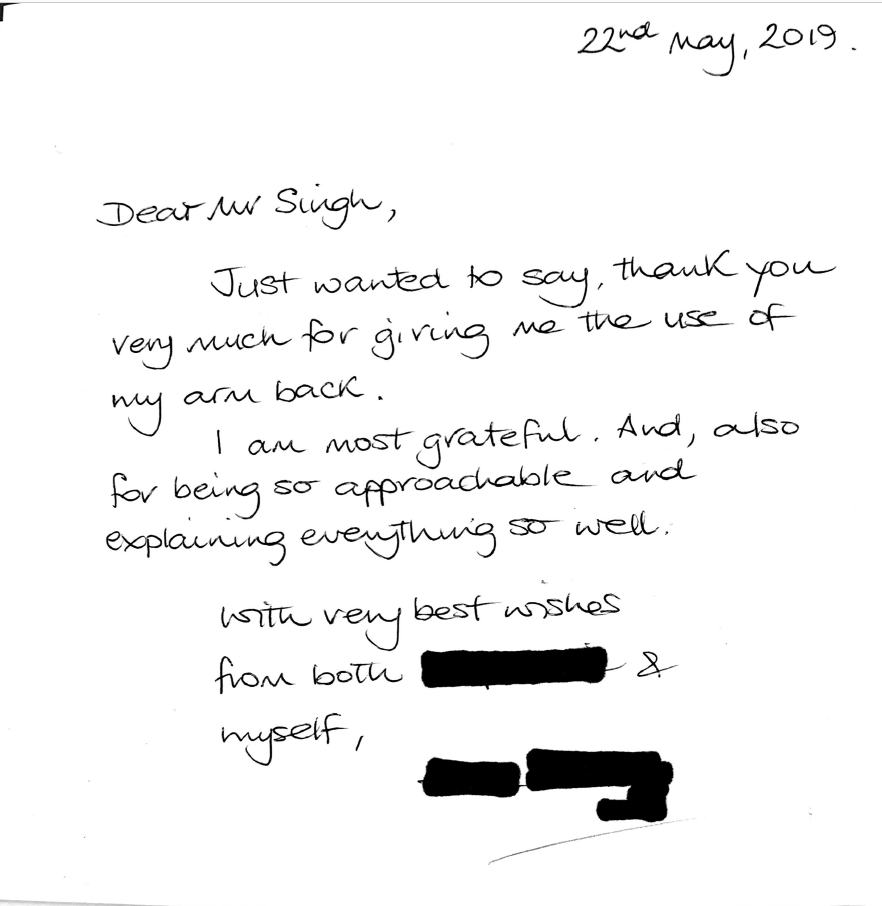 22nd May, 2019.
Dear Mr Singh,
Just wanted to say, thank you
very much for giving me the use of
my arm back.
I am most grateful. And, also
for being so approachable and
explaining everything so well.
With very best wishes
from both &
myself,